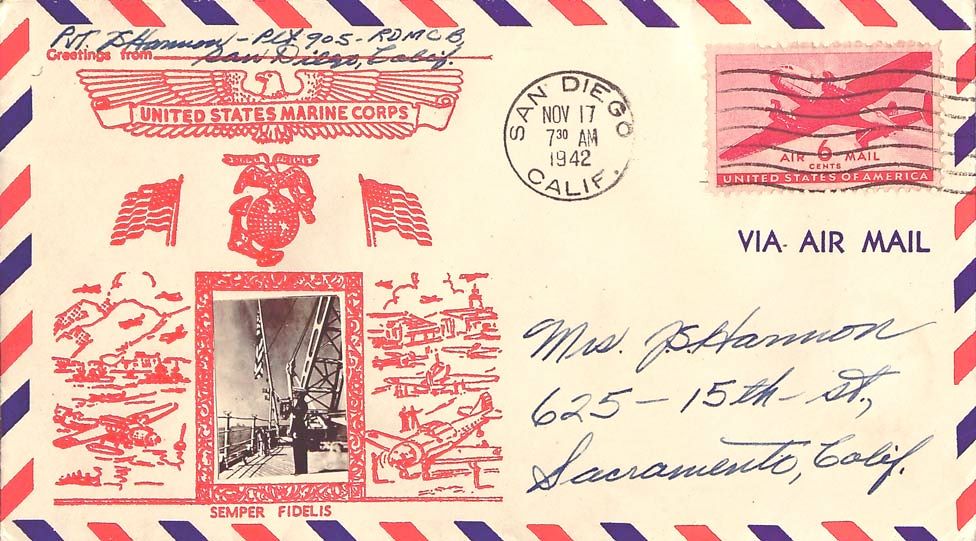 Pvt. JS Hannon - Plt 905 - RDMCB
Greetings from San Diego, Calif.
UNITED STATES MARINE CORPS
SEMPER FIDELIS
SEMPER FIDELIS
SAN DIEGO
NOV 17
7 30 AM
1942
CALIF.
AIR 6 MAIL
CENTS
UNITED STATES OF AMERICA
VIA AIR MAIL
Mrs. JS Hannon
625 - 15th - st.,
Sacramento, Calif.